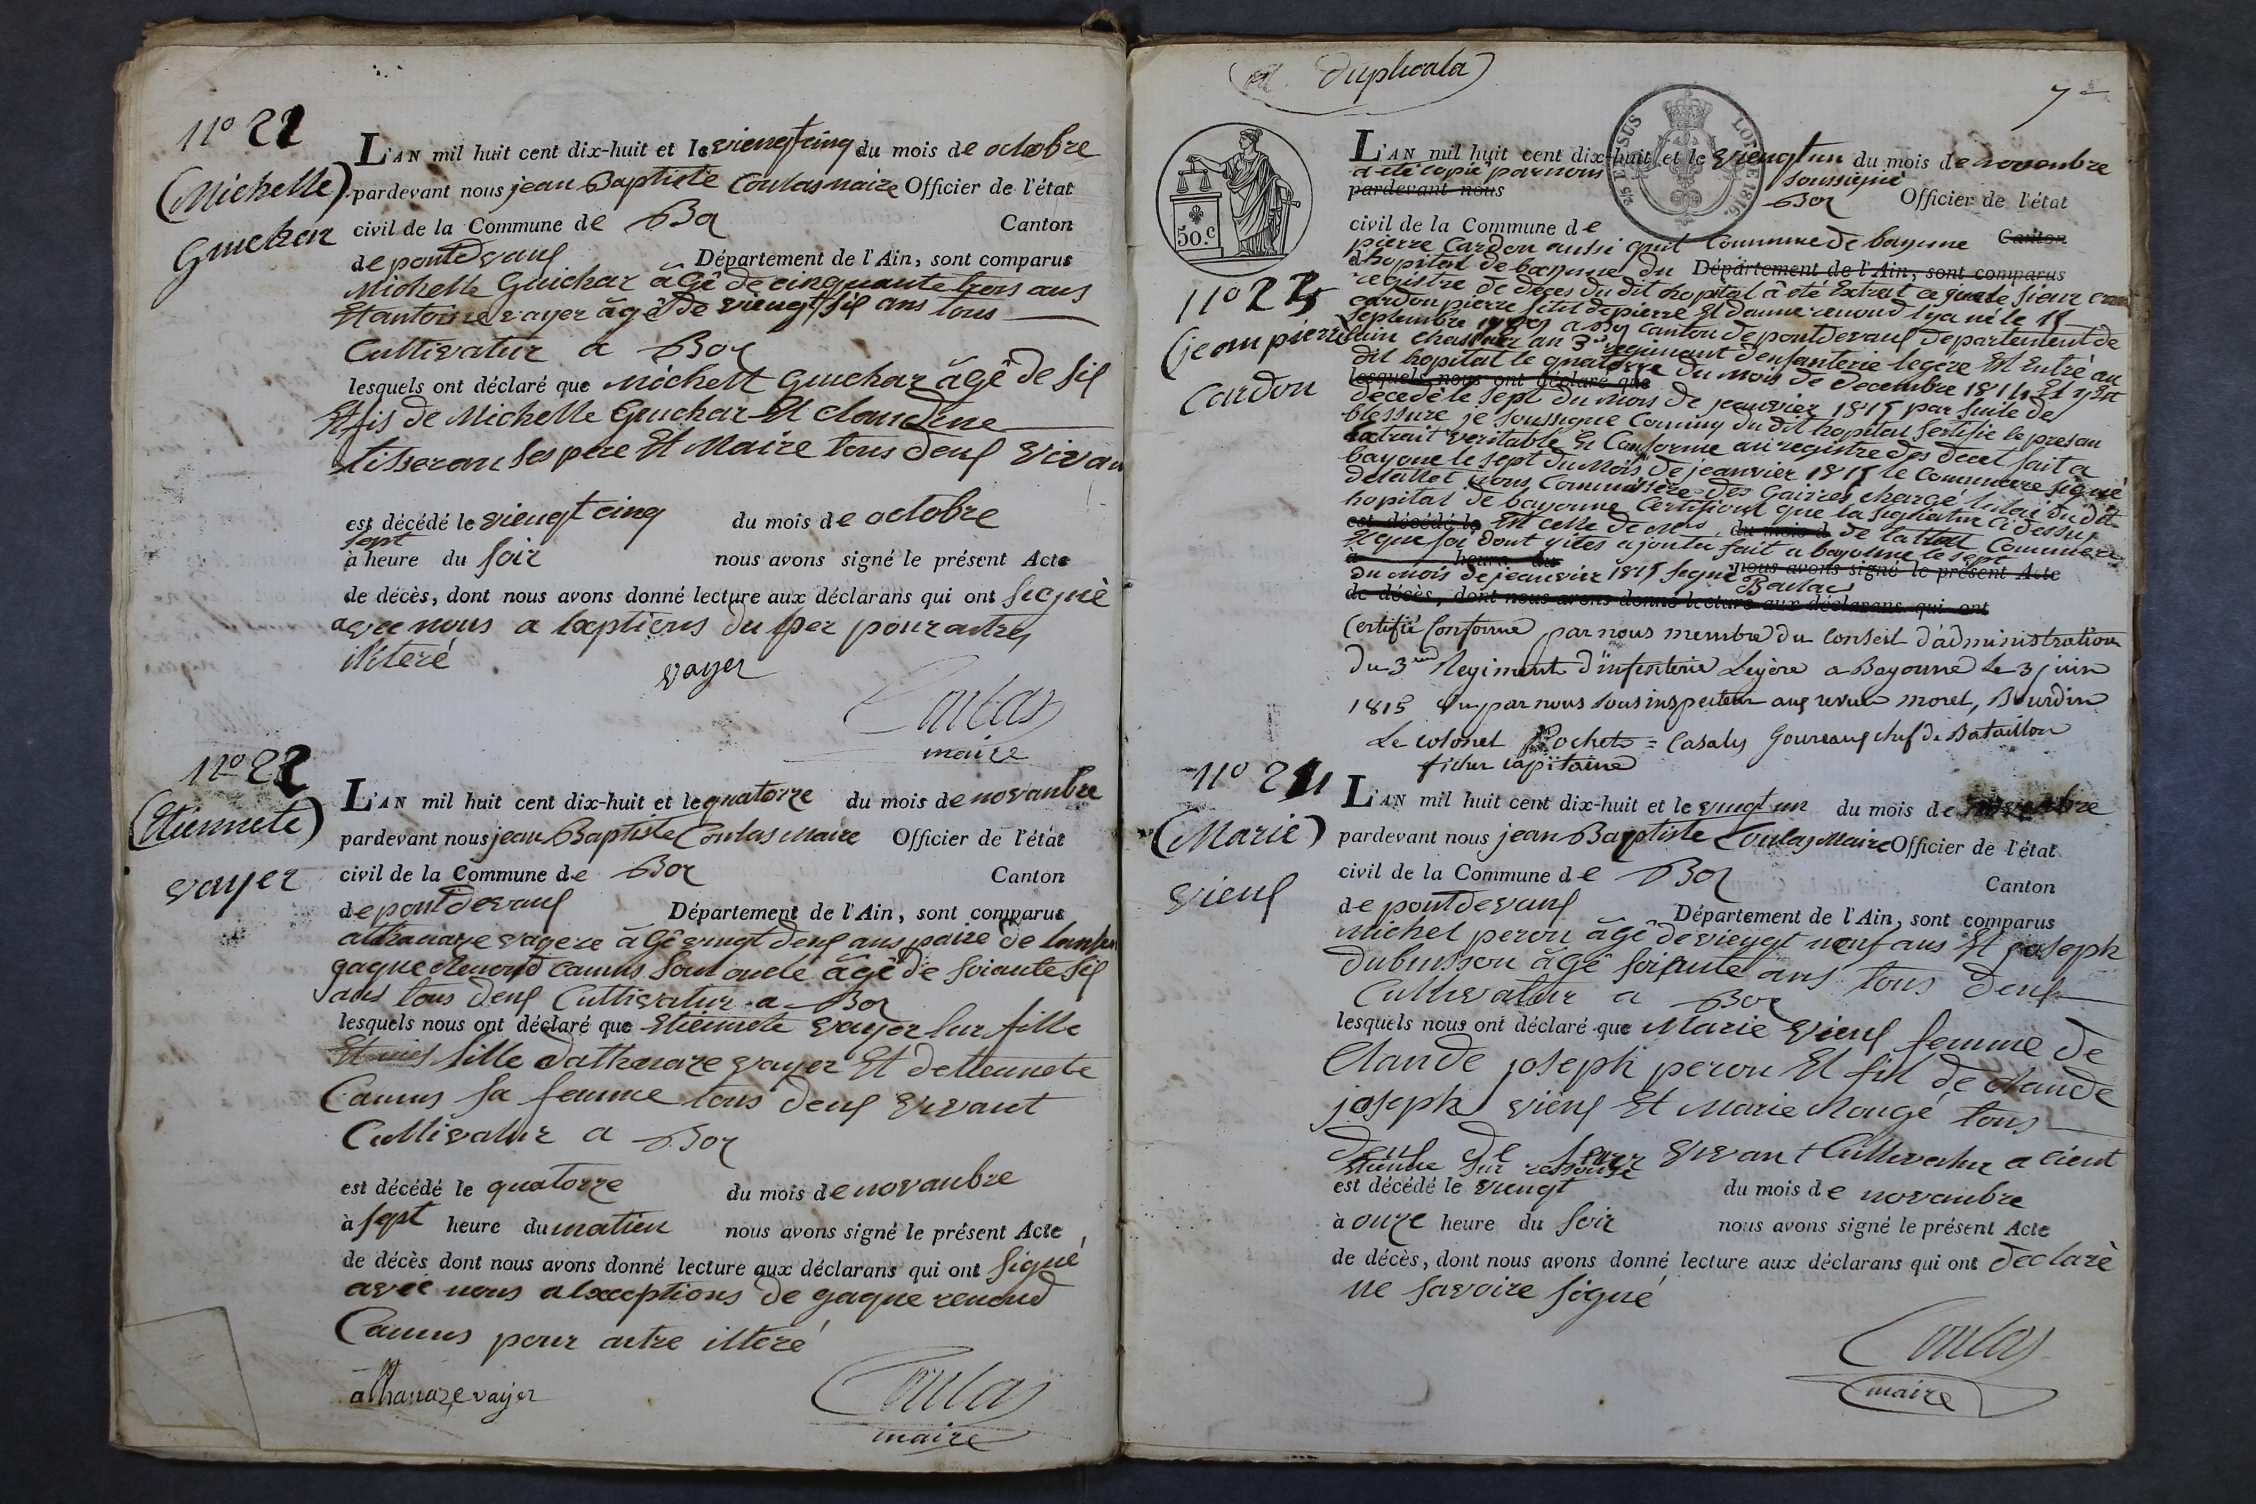 N° 22
(Michelle)
Guichar
L'AN mil huit cent dix-huit et le viengt cinq du mois de octobre
pardevant nous jean Baptiste Coulas maire Officier de l'état
civil de la Commune de Boz Canton
de pont devaux Département de l'Ain, sont comparus
Michelle Guichar âgê de cinquante trois ans
Et antoine vayer âgê de viengt six ans tous
Cultivatur a Boz
lesquels ont déclaré que michell Guichar âgê de six
Et fis de Michelle Guichar Et claudine
tisseran ses pere Et Maire tous deux vivan
est décédé le viengt cinq du mois de octobre
sept
à heure du soir nous avons signé le présent Acte
de décès, dont nous avons donné lecture aux déclarans qui ont signè
avec nous a lxptions du per pour astre
illteré
vayer
Coulas
maire
N° 22
(Etiennete)
vayer
L'AN mil huit cent dix-huit et le quatorze du mois de novanbre
pardevant nous jean Baptiste Coulas Maire Officier de l'état
civil de la Commune de Boz Canton
de pont devaux Département de l'Ain, sont comparus
athanaze vayere âGê vingt deux ans paire de lanfan
gaque Renoud camus son oncle âgê de soiante six
ans tous deux Cultivatur a Boz
lesquels nous ont déclaré que Etiennete vayer lur fille
fille dathanaze vayer Et detiennete
Camus sa femme tous deux vivant
Cultivatur a Boz
est décédé le quatorze du mois de novanbre
à sept heure du matien nous avons signé le présent Acte
de décès dont nous avons donné lecture aux déclarans qui ont signé
avec nous alxceptions de gaque renoud
Camus pour astre illteré
athanaze vayer
Coulas
maire
duplicata
7
25 EN SUS
LOI DE 1816.
50.c
N° 23
(jean pierre
Cardon
L'AN mil huit cent dix-huit et le viengt un du mois de novenbre
a été copié par nous soussigné
pardevant nous Boz Officier de l'état
civil de la Commune de
pierre Cardon aussi quil Commune de bayonne Canton
d hopital de bayonne du Département de l'Ain, sont comparus
registre de deces du dit hopital â été Extrait ce que le sieur
cardon pierre fils de pierre Et danne renoud l ya né le 18
septembre a Boz canton de pont devaux departement de
lain chasseur au 3e regimant denfanterie legere Est Entré au
dit hopital le quatorze du mois de decembre 1814 Et y Est
lesquels nous ont déclaré que
decedé le sept du mois de jeanvier 1815 par suite de
blessure je soussigne Commis du dit hopital sertifie le presan
Extrait veritable Et Conforme au registre des decet fait a
bayone le sept du mois de jeanvier 1815 le Commere signé
nous Commissere des Gairres chargé du dit
hopital de bayonne Certifions que la signiatur ci dessus
est décédé le Est celle de du mois d de Commere
Et que foi dont y etes ajouter fait a bayonne le sept
à heure du nous avons signé le présent Acte
du mois de jeanvier 1815 signe
de décès, dont nous avons donné lecture aux déclarans qui ont
Certifié Conforme par nous membre du Conseil d'administration
du 3me Regiment d'infenterie Legère a Bayonne Le 3 juin
1815 Vu par nous sous inspecteur aux revues morel, Bourdin
Le colonel Rochet = Casaly Goureaux chef de Bataillon
ficher capitaine
N° 24
(Marie)
vieux
L'AN mil huit cent dix-huit et le vingt un du mois de novenbre
pardevant nous jean Baptiste Coulas Maire Officier de l'état
civil de la Commune de Boz Canton
de pont devaux Département de l'Ain, sont comparus
Michel peron âgê de viengt neuf ans Et joseph
dubuisson âgê soisante ans tous deux
Cultivatur a Boz
lesquels nous ont déclaré que Marie vieux femme de
Claude joseph peron Et fil de claude
joseph vieux Et Marie Rongé tous
deux de vivant Cultivatur a cient
Etienne sur ressouze
est décédé le viengt du mois de novanbre
à onze heure du soir nous avons signé le présent Acte
de décès, dont nous avons donné lecture aux déclarans qui ont declarè
ne savoire signé
Coulas
maire